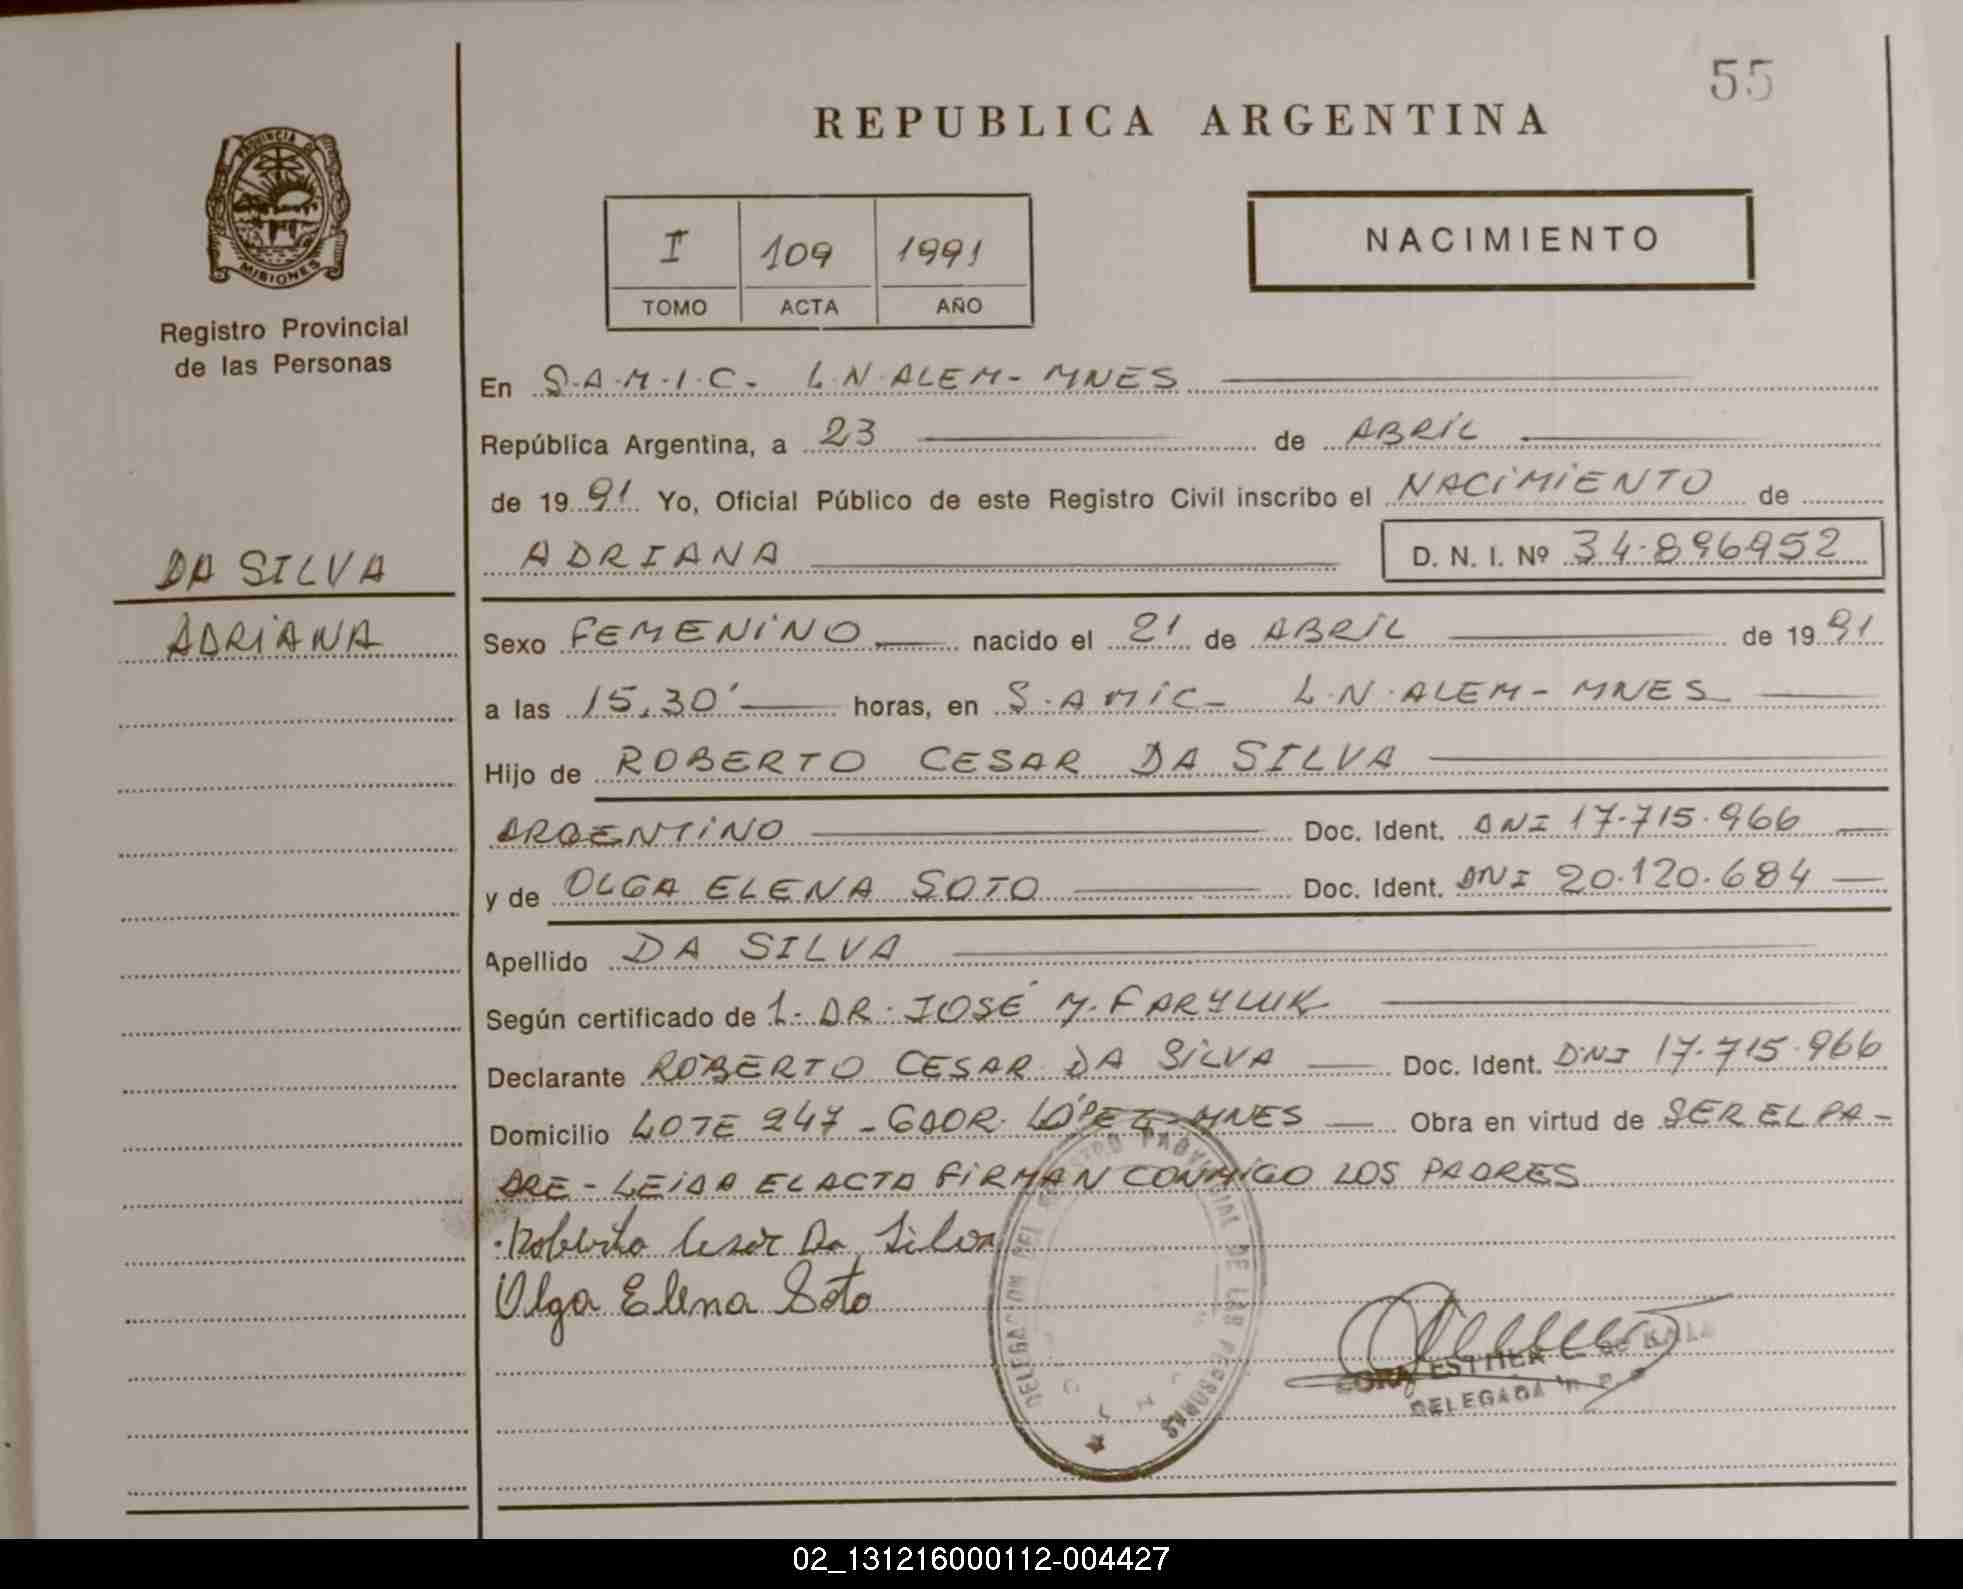 55
REPUBLICA ARGENTINA
PROVINCIA DE
MISIONES
Registro Provincial
de las Personas
I 109 1991
TOMO ACTA AÑO
NACIMIENTO
En S.A.M.I.C. L.N.ALEM-MNES
República Argentina, a 23 de ABRIL
de 1991 Yo, Oficial Público de este Registro Civil inscribo el NACIMIENTO de
ADRIANA D. N. I. Nº 34.896952
DA SILVA
ADRIANA
Sexo FEMENINO nacido el 21 de ABRIL de 1991
a las 15,30' horas, en S.AMIC- L.N.ALEM-MNES
Hijo de ROBERTO CESAR DA SILVA
ARGENTINO Doc. Ident. DNI 17.715.966
y de OLGA ELENA SOTO Doc. Ident. DNI 20.120.684
Apellido DA SILVA
Según certificado de 1. DR. JOSÉ M. FARYLUK
Declarante ROBERTO CESAR DA SILVA Doc. Ident. DNI 17.715.966
Domicilio LOTE 247-GDOR. LÓPEZ-MNES Obra en virtud de SER EL PA-
DRE - LEIDA EL ACTA FIRMAN CONMIGO LOS PADRES
Roberto Cesar Da Silva
Olga Elena Soto
DELEGACION DEL REGISTRO PROVINCIAL DE LAS PERSONAS
ESTHER
DELEGADA
02_131216000112-004427